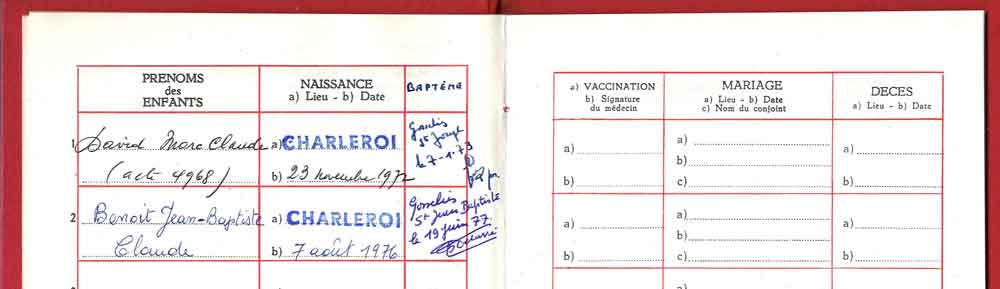 PRENOMS
des
ENFANTS
NAISSANCE
a) Lieu - b) Date
BAPTÊME
1 David Marc Claude
(acte 4968)
a) CHARLEROI
b) 23 novembre 1972
St Joseph
le 7-1-73
2 Benoit Jean-Baptiste
Claude
a) CHARLEROI
b) 7 août 1976
Gosselies
St Jean Baptiste
le 19 juin 77
a) VACCINATION
b) Signature
du médecin
MARIAGE
a) Lieu - b) Date
c) Nom du conjoint
DECES
a) Lieu - b) Date
a)
b)
a)
b)
c)
a)
b)
a)
b)
a)
b)
c)
a)
b)
a)